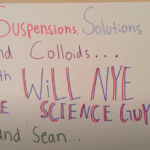 Suspensions, Solutions
nd Colloids...
th WiLL NYE
E SCIENCE GUY
and Sean...